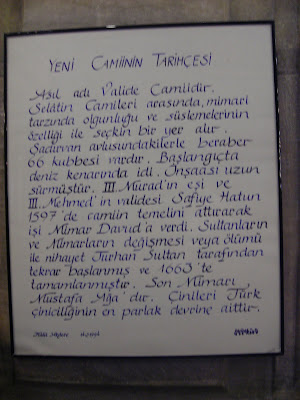 YENİ CAMİİNİN TARİHÇESİ
Asıl adı Valide Camiidir.
Selâtin Camileri arasında, mimari
tarzında olgunluğu ve süslemelerinin
özelliği ile seçkin bir yer alır.
Şadırvan avlusundakilerle beraber
66 kubbesi vardır. Başlangıçta
deniz kenarında idi. İnşaası uzun
sürmüştür. III. Murad'ın eşi ve
III. Mehmed'in validesi Safiye Hatun
1597'de camiin temelini attırarak
işi Mimar Davud'a verdi. Sultanların
ve Mimarların değişmesi veya ölümü
ile nihayet Turhan Sultan tarafından
tekrar başlanmış ve 1663'te
tamamlanmıştır. Son Mimarı
Mustafa Ağa'dır. Çinileri Türk
çiniciliğinin en parlak devrine aittir.